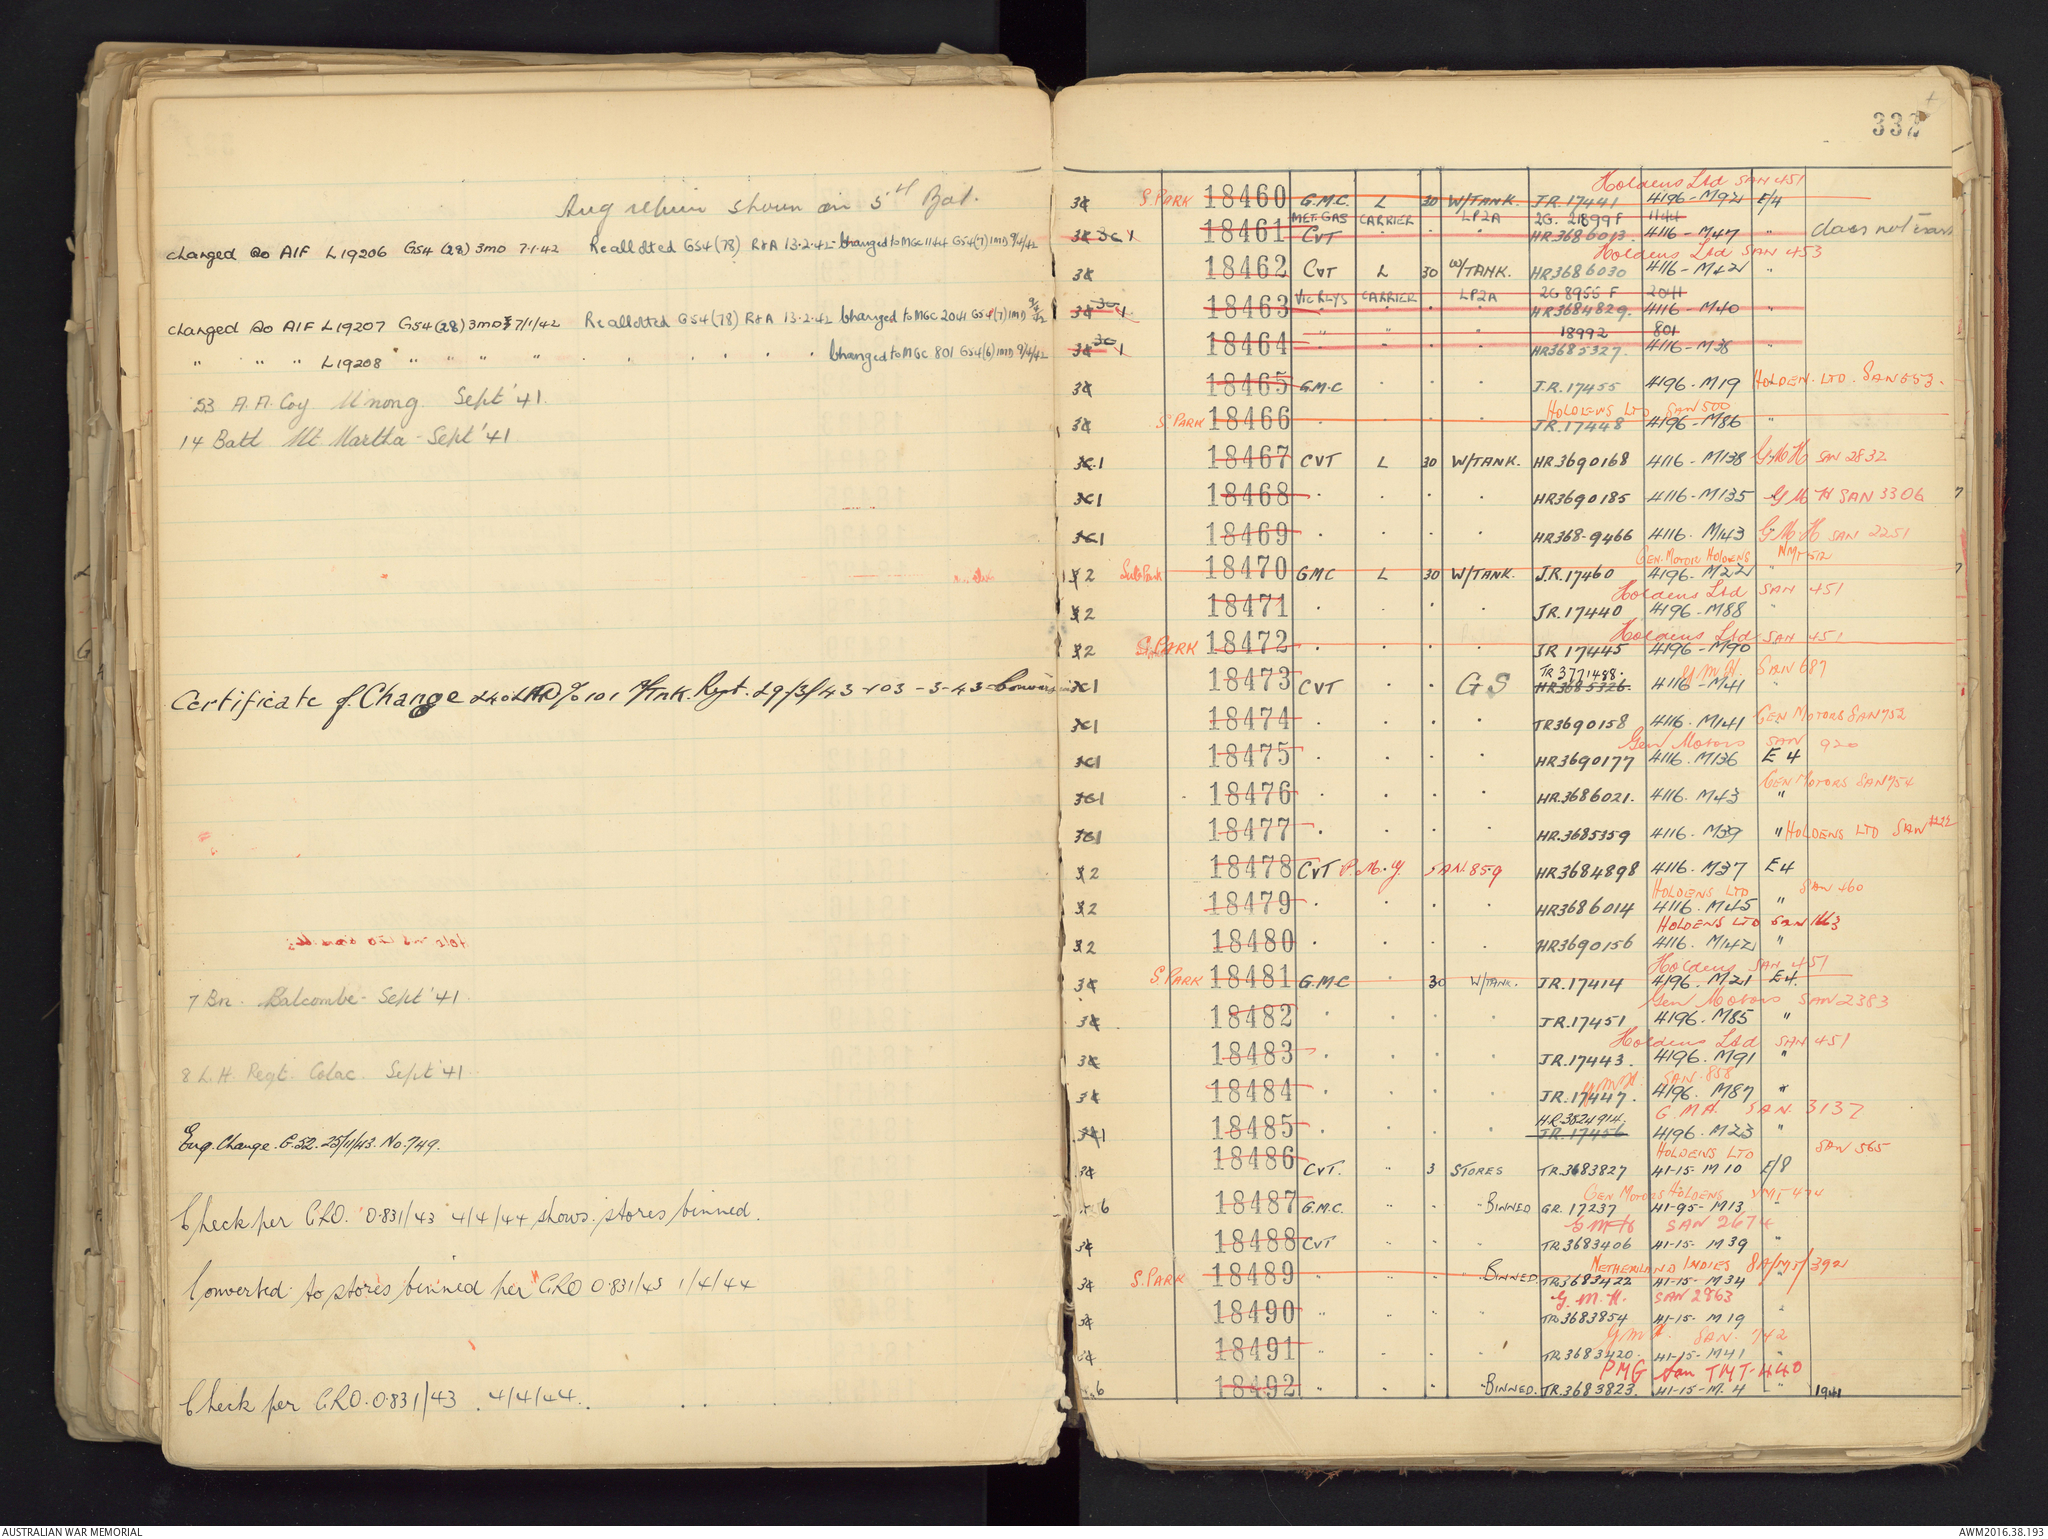 Aug return shown on 5th Bat.
changed to AIF L19206 G54 (28) 3MD 7.1.42 Reallotted G54 (78) R&A 13.2.42 Changed to MGC 1144 G54(7) 1MD 9/4/42
changed to AIF L19207 G54 (28) 3MD 7/1/42 Reallotted G54 (78) R&A 13.2.42 Changed to MGC 2041 G54(7) 1MD 9/4/42
" " " L19208 " " " " Changed to MGC 801 G54(6) 1MD 9/4/42
53 A.A. Coy Sept '41.
14 Batt Mt Martha - Sept '41
Certificate of Change 101 A/Tnk. Regt. 29/3/43
7 Bn. Balcombe - Sept '41
8 L.H. Regt. Colac. Sept '41
Eng. Change. G.52. 25/11/43. No. 749.
Check per CRO. 0.831/43 4/4/44 shows stores binned.
Converted to stores binned per CRO 0.831/43 1/4/44
Check per CRO. 0.831/43 . 4/4/44.
332
Holdens Ltd SAN 451
S. PARK 18460 G.M.C. L 30 W/TANK. JR. 17441 4196-M92 E/4
MET. GAS CARRIER LP2A 2G. 21899 F 1144
18461 CVT HR3686013. 4116-M47 " does not exist
Holdens Ltd SAN 453
18462 CVT L 30 W/TANK. HR3686030 4116-M42 "
VIC RLYS CARRIER LP2A 2G 8955 F 2041
18463 HR3684829. 4116-M40 "
18992 801
18464 " " HR3685327. 4116-M38 "
18465 G.M.C J.R. 17455 4196-M19 HOLDEN. LTD. SAN 553.
HOLDENS LTD SAN 500
S. PARK 18466 JR. 17448 4196-M86 "
18467 CVT L 30 W/TANK. HR3690168 4116-M138 G.M.H SAN 2832
18468 HR3690185 4116-M135 G M H SAN 3306
18469 HR368-9466 4116. M143 G.M.H SAN 2251
GEN. MOTOR HOLDENS
2 Sub Park 18470 GMC L 30 W/TANK. J.R. 17460 4196. M22 "
Holdens Ltd SAN 451
2 18471 JR. 17440 4196. M88 "
Holdens Ltd SAN 451
2 S. PARK 18472 JR 17445 4196-M90
TR 3771488. G.M.H. SAN 687
18473 CVT GS HR3685326. 4116-M41 "
18474 TR3690158 4116. M141 GEN MOTORS SAN 752
Gen Motors SAN 920
18475 HR3690177 4116. M136 E 4
GEN MOTORS SAN 754
18476 HR. 3686021. 4116. M43 "
18477 HR. 3685359 4116. M39 " HOLDENS LTD SAN
2 18478 CVT P.M.G. SAN 859 HR3684898 4116. M37 E4
HOLDENS LTD SAN 460
2 18479 HR3686014 4116. M45 "
HOLDENS LTD SAN 1663
2 18480 HR3690156 4116. M142 "
Holdens SAN 451
S. PARK 18481 G.M.C 30 W/TANK. JR. 17414 4196. M21 E4.
Gen Motors SAN 2383
18482 JR. 17451 4196. M85 "
Holdens Ltd SAN 451
18483 JR. 17443. 4196. M91 "
G.M.H. SAN. 858
18484 JR. 17447. 4196. M87 "
HR. 3824914. G.M.H. SAN. 3137
18485 JR. 17456 4196. M23 "
HOLDENS LTD SAN 565
18486 CVT. " 3 STORES TR. 3683827 41-15-M10 E/8
GEN MOTORS HOLDENS
6 18487 G.M.C. " " BINNED GR. 17237 41-95-M13
G M H SAN 2674
18488 CVT TR3683406 41-15-M39 "
NETHERLAND INDIES
S. PARK 18489 " " BINNED. TR3683422 41-15-M34 "
G.M.H. SAN 2863
18490 " TR3683854 41-15-M19 "
G M H. SAN. 742
18491 " TR3683420. 41-15-M41 "
PMG San TMT-440
6 18492 " BINNED. TR. 3683823. 41-15-M. 4 " 1941
AUSTRALIAN WAR MEMORIAL
AWM2016.38.193